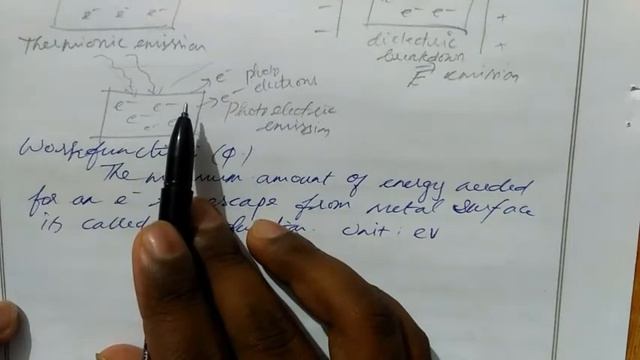 e⁻ e⁻ e⁻
Thermionic emission
- - e⁻ e⁻ + +
dielectric
breakdown
E⃗ emission
e⁻ photo
electrons
e⁻
e⁻ e⁻
e⁻ e⁻
Photoelectric
emission
Workfunction (φ.)
The minimum amount of energy needed
for an e⁻ escape from metal surface
is called unit: ev